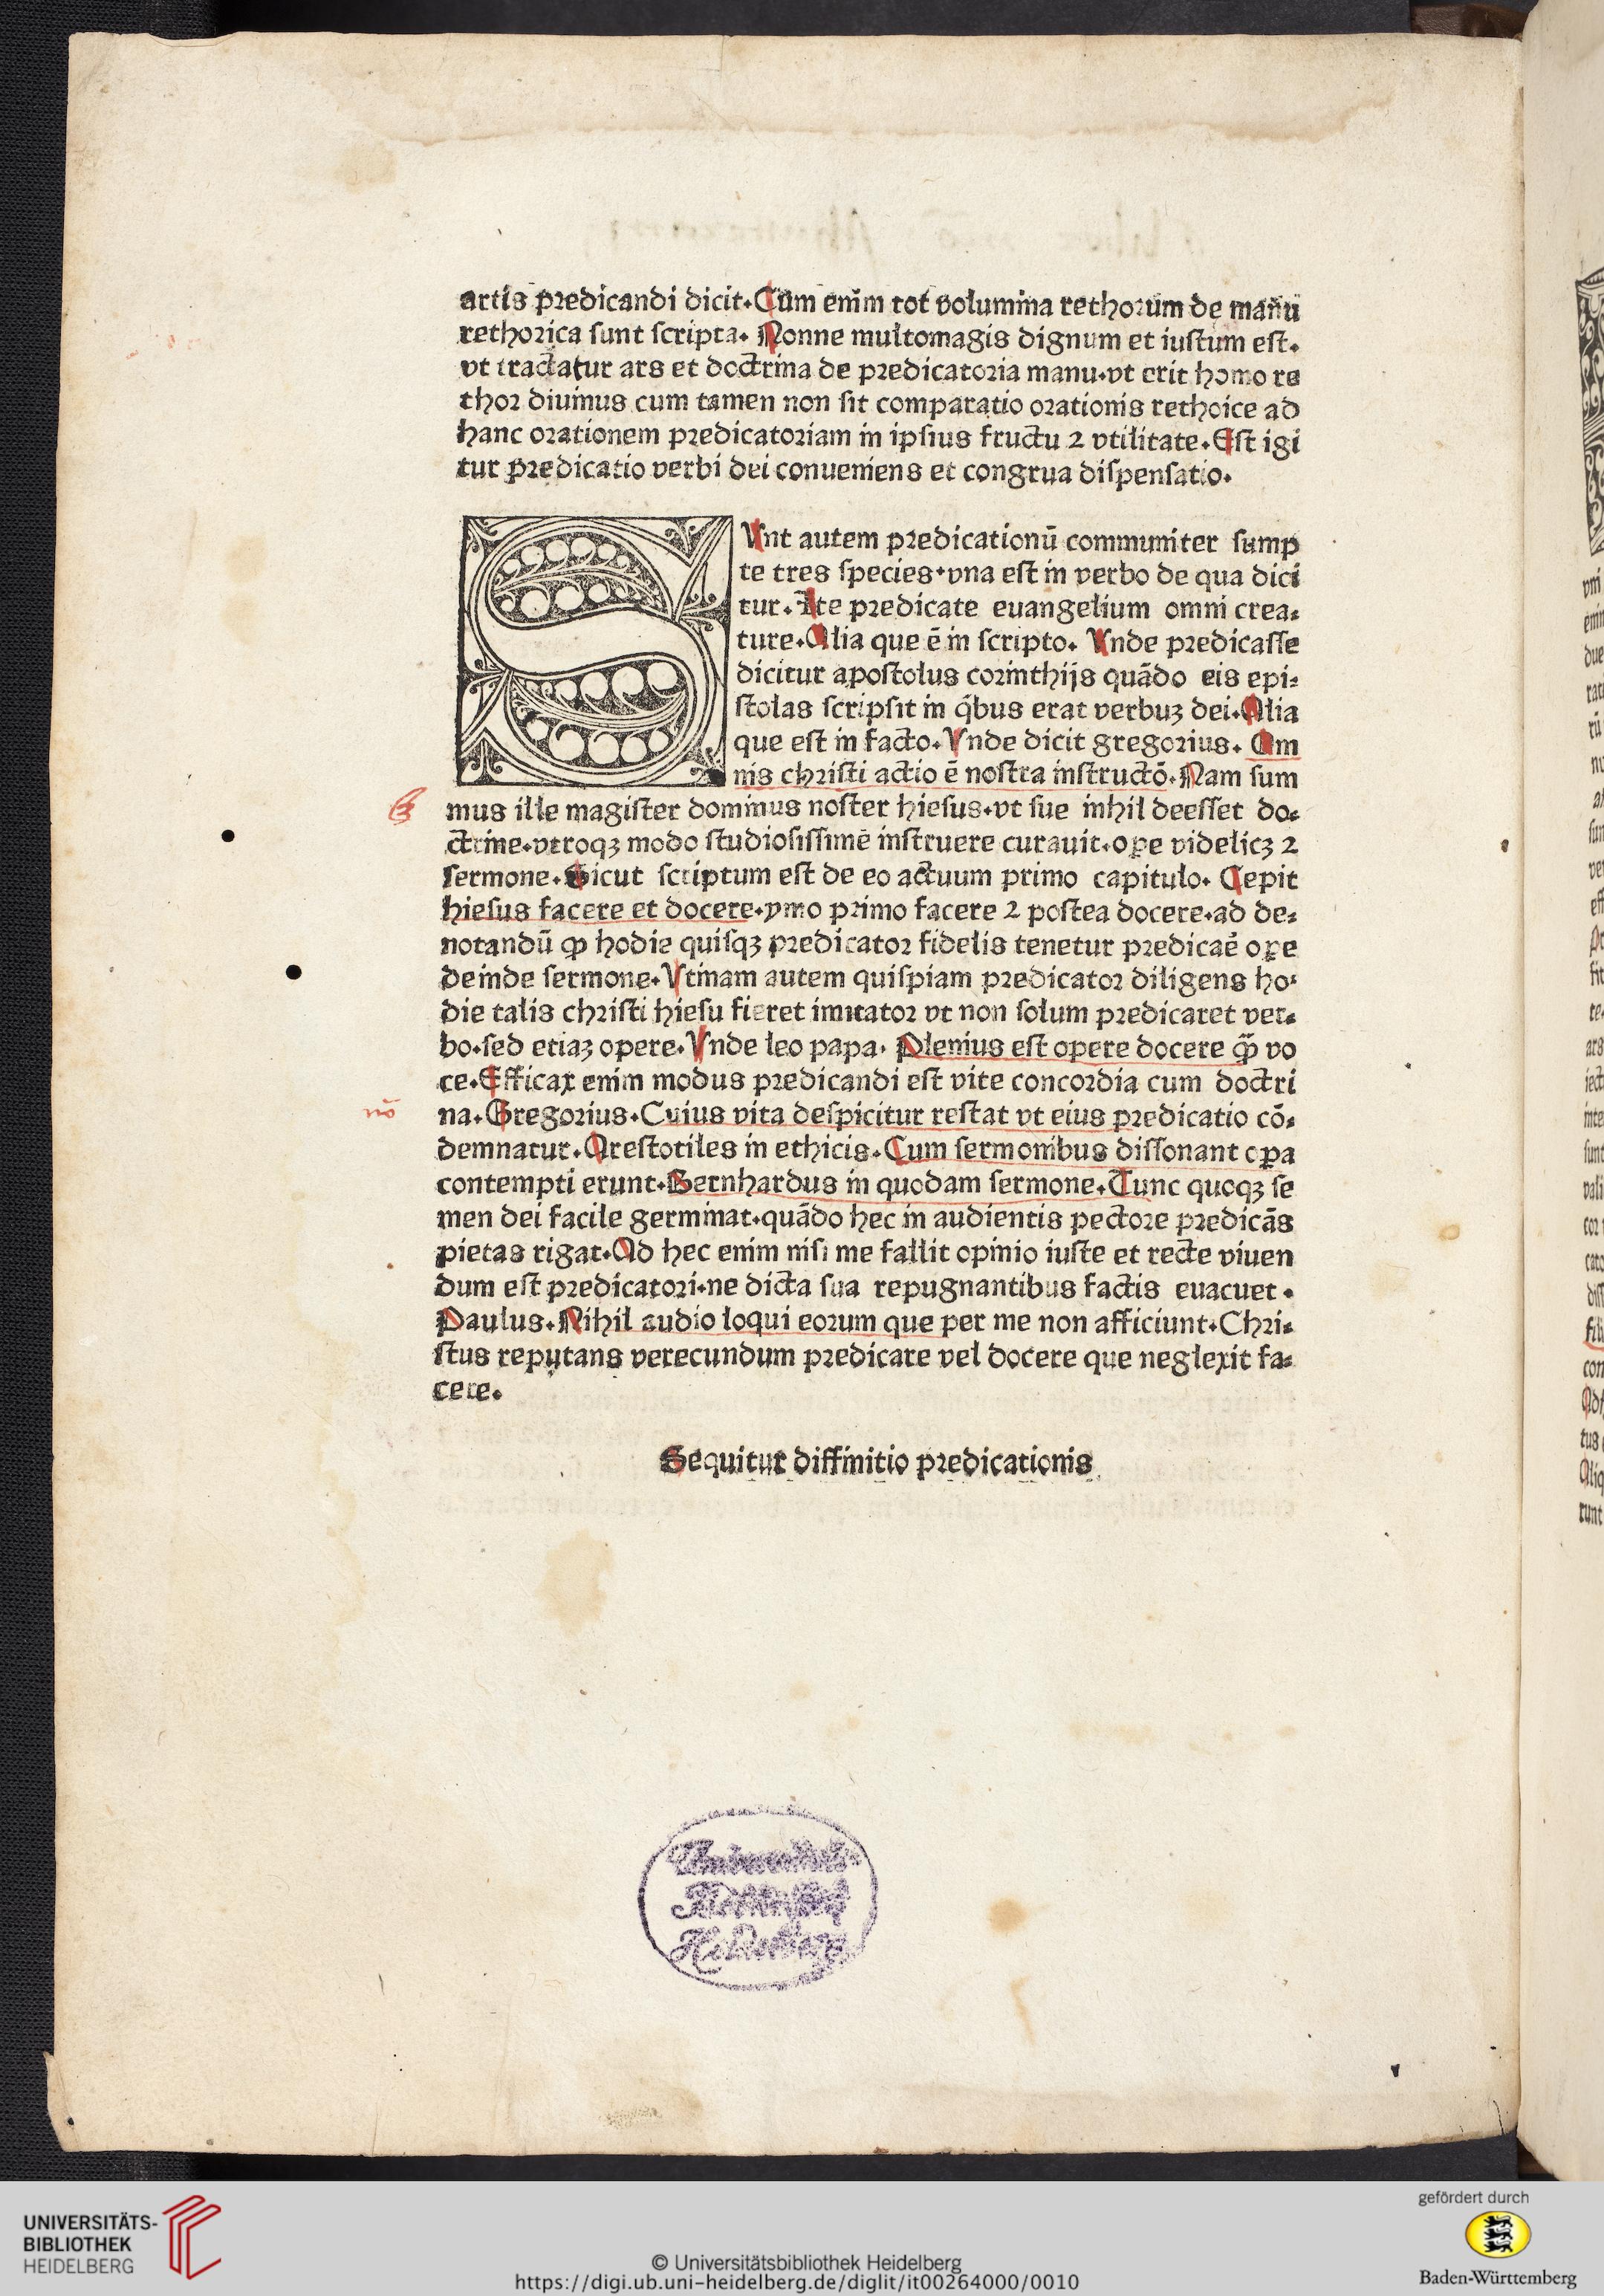 artis predicandi dicit. Cum enim tot volumina rethorum de manu
rethorica sunt scripta. Nonne multomagis dignum et iustum est.
vt tractatur ars et doctrina de predicatoria manu. vt erit homo re
thor diuinus cum tamen non sit comparatio orationis rethoice ad
hanc orationem predicatoriam in ipsius fructu ⁊ vtilitate. Est igi
tur predicatio verbi dei conueniens et congrua dispensatio.
SVnt autem predicationū communiter sump
te tres species. vna est in verbo de qua dici
tur. Ite predicate euangelium omni crea-
ture. Alia que ē in scripto. Vnde predicasse
dicitur apostolus corinthijs quādo eis epi-
stolas scripsit in q̄bus erat verbuʒ dei. Alia
que est in facto. Vnde dicit gregorius. Om
nis christi actio ē nostra instructō. Nam sum
mus ille magister dominus noster hiesus. vt sue inhil deesset do-
ctrine. vtroqʒ modo studiosissime instruere curauit. oꝑe videlicʒ ⁊
sermone. Sicut scriptum est de eo actuum primo capitulo. Cepit
hiesus facere et docere. ymo primo facere ⁊ postea docere. ad de-
notandū ꝙ hodie quisqʒ predicator fidelis tenetur predicaē oꝑe
deinde sermone. Vtinam autem quispiam predicator diligens ho-
die talis christi hiesu fieret imitator vt non solum predicaret ver-
bo. sed etiaʒ opere. Vnde leo papa. Plenius est opere docere ꝙ̄ vo
ce. Efficax enim modus predicandi est vite concordia cum doctri
nō
na. Gregorius. Cuius vita despicitur restat vt eius predicatio cō-
demnatur. Arestotiles in ethicis. Cum sermonibus dissonant oꝑa
contempti erunt. Bernhardus in quodam sermone. Tunc quoqʒ se
men dei facile germinat. quādo hec in audientis pectore predicās
pietas rigat. Ad hec enim nisi me fallit opinio iuste et recte viuen
dum est predicatori. ne dicta sua repugnantibus factis euacuet.
Paulus. Nihil audio loqui eorum que per me non afficiunt. Chri-
stus reputans verecundum predicare vel docere que neglexit fa-
cere.
Sequitur diffinitio predicationis
Universitäts-
Bibliothek
Heidelberg
UNIVERSITÄTS-
BIBLIOTHEK
HEIDELBERG
© Universitätsbibliothek Heidelberg
https://digi.ub.uni-heidelberg.de/diglit/it00264000/0010
gefördert durch
Baden-Württemberg